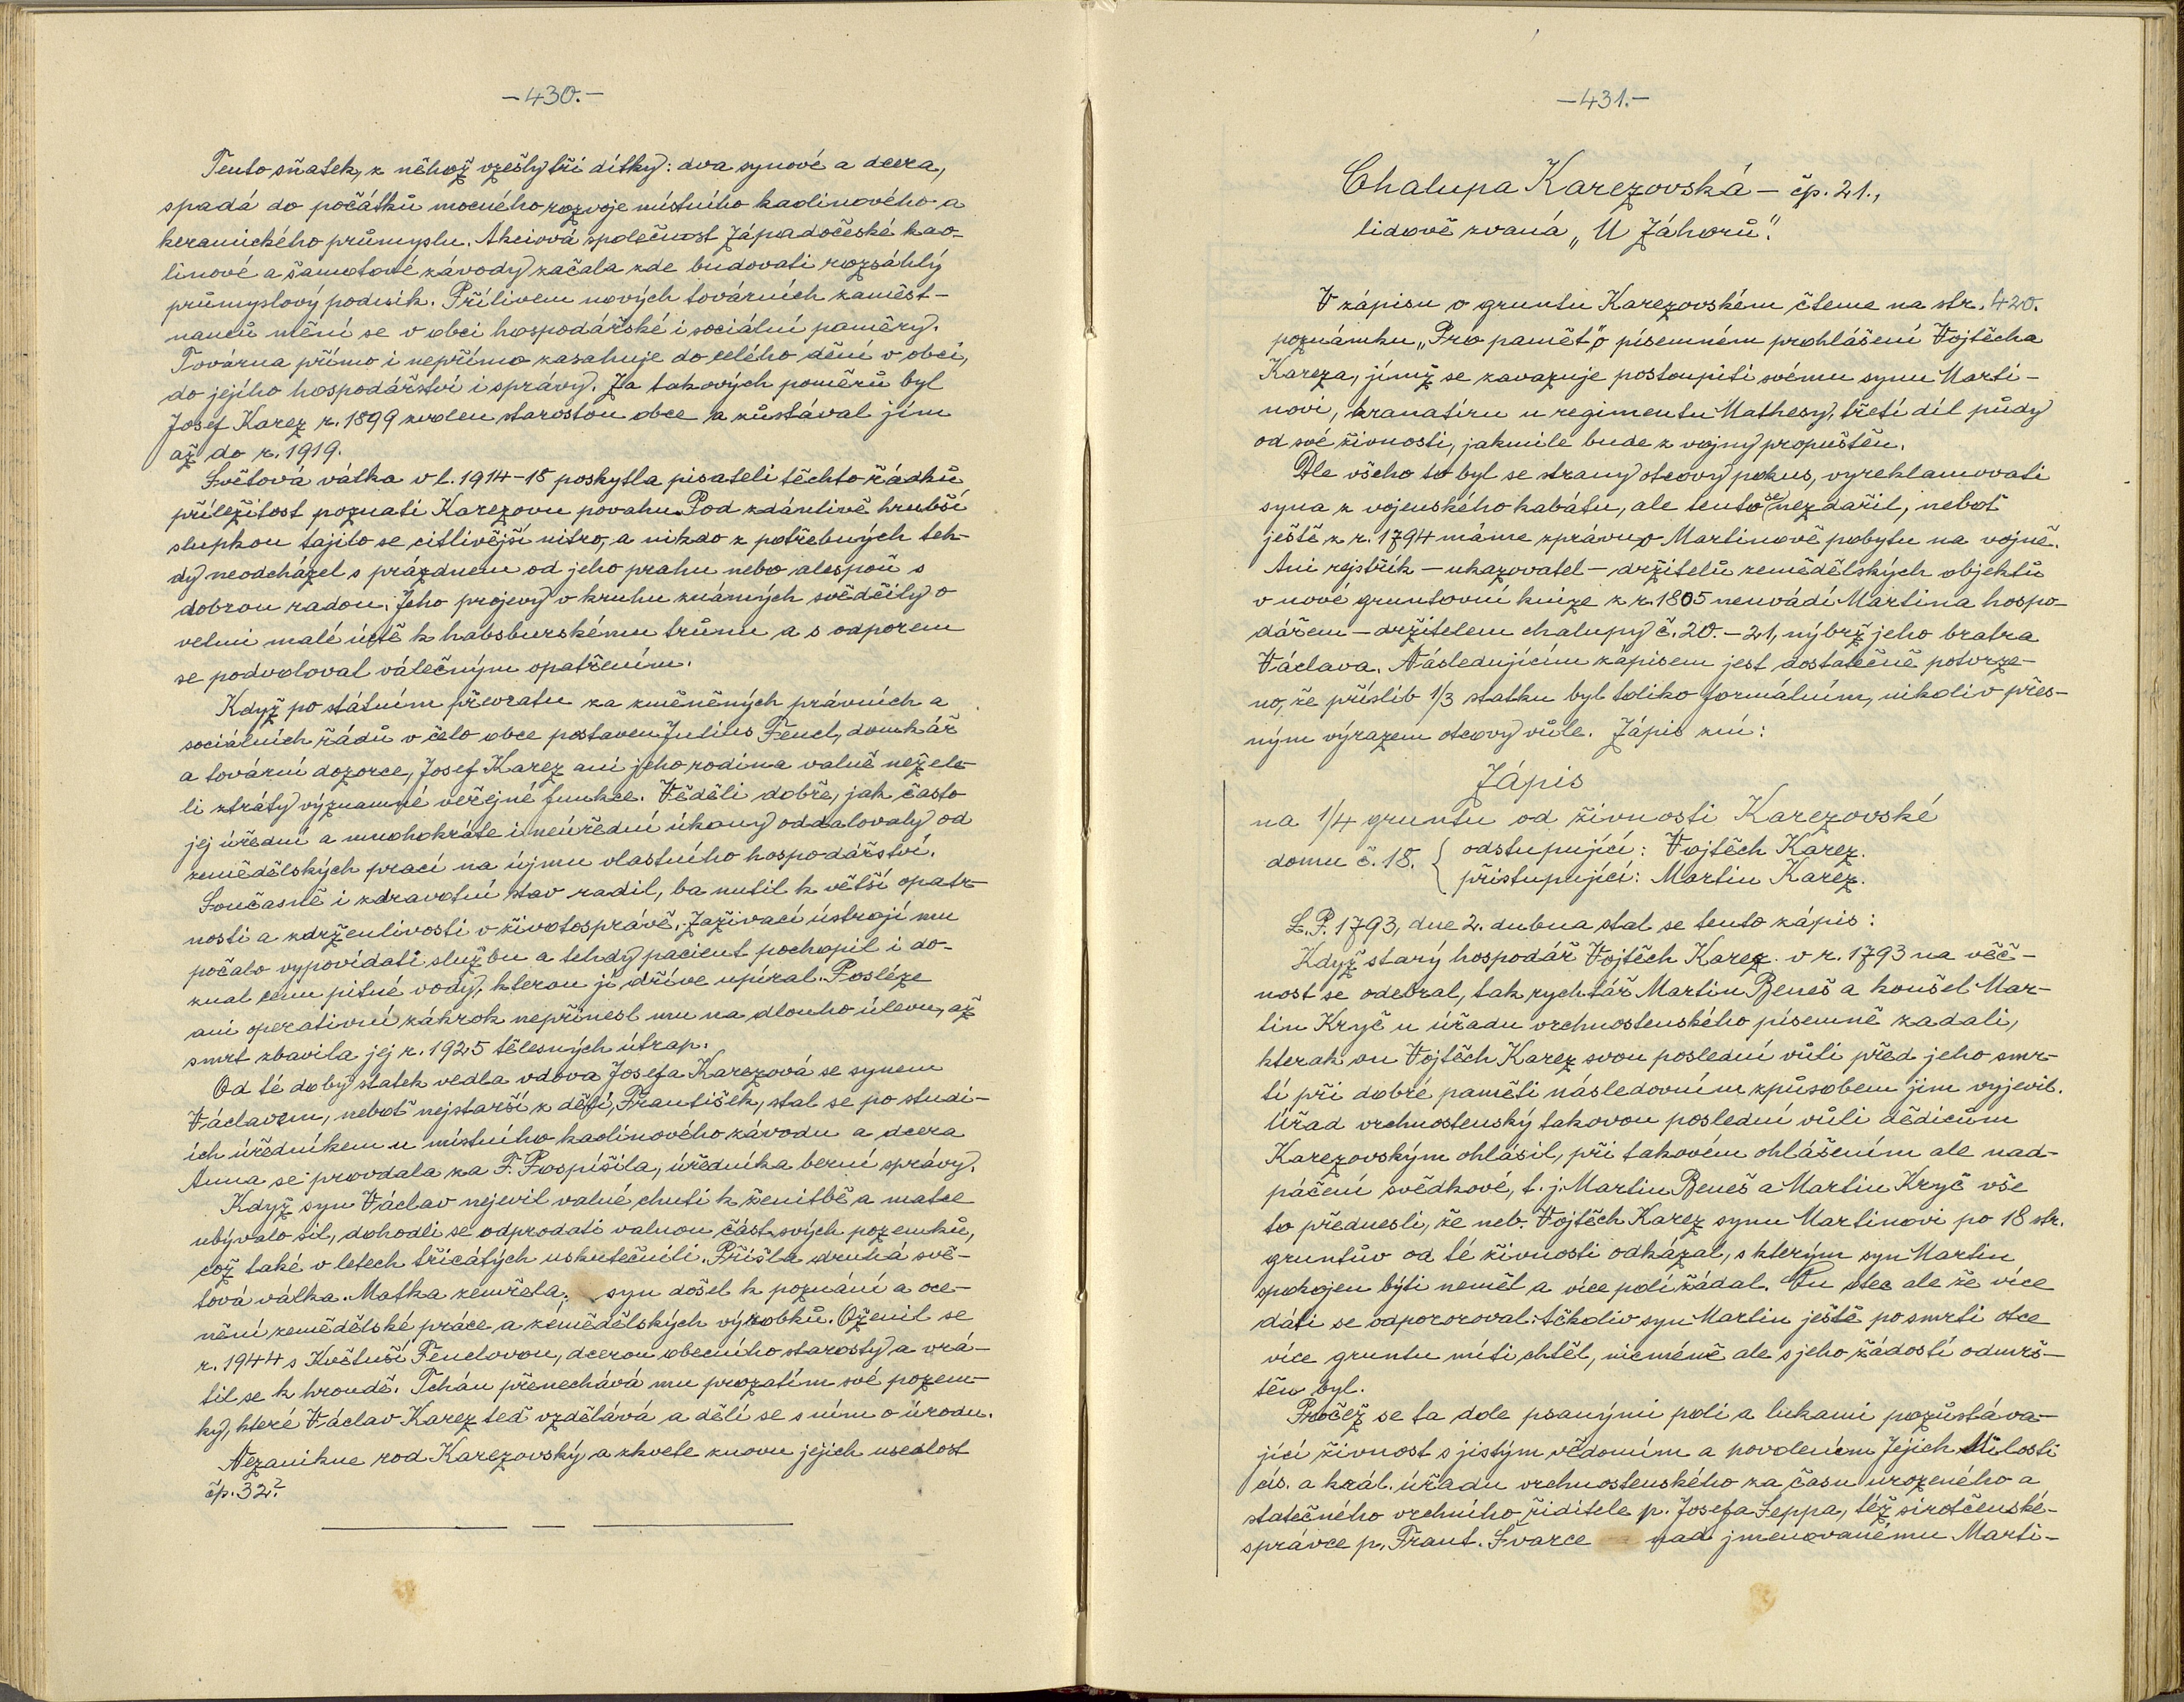 -430.-
Tento sňatek, z něhož vzešly tři dítky: dva synové a dcera,
spadá do počátků mocného rozvoje místního kaolinového a
keramického průmyslu. Akciová společnost Západočeské kao-
linové a šamotové závody začala zde budovati rozsáhlý
průmyslový podnik. Přílivem nových továrních zaměst-
nanců mění se v obci hospodářské i sociální poměry.
Továrna přímo i nepřímo zasahuje do celého dění v obci,
do jejího hospodářství i správy. Za takových poměrů byl
Josef Karez r. 1899 zvolen starostou obce a zůstával jím
až do r. 1919.
Světová válka v l. 1914-18 poskytla pisateli těchto řádků
příležitost poznati Karezovu povahu. Pod zdánlivě hrubší
slupkou tajilo se citlivější nitro, a nikdo z potřebných teh-
dy neodcházel s prázdnem od jeho prahu nebo alespoň s
dobrou radou. Jeho projevy v kruhu známých svědčily o
velmi malé úctě k habsburskému trůnu a s odporem
se podvoloval válečným opatřením.
Když po státním převratu za změněných právních a
sociálních řádů v čelo obce postaven Julius Fencl, domkář
a tovární dozorce, Josef Karez ani jeho rodina valně nežele-
li ztráty významné veřejné funkce. Věděli dobře, jak často
jej úřední a mnohokráte i neúřední úkony oddalovaly od
zemědělských prací na újmu vlastního hospodářství.
Současně i zdravotní stav radil, ba nutil k větší opatr-
nosti a zdrženlivosti v životosprávě. Zažívací ústrojí mu
počalo vypovídati službu a tehdy pacient pochopil i do-
znal cenu pitné vody, kterou jí dříve upíral. Posléze
ani operativní zákrok nepřinesl mu na dlouho úlevu, až
smrt zbavila jej r. 1925 tělesných útrap.
Od té doby statek vedla vdova Josefa Karezová se synem
Václavem, neboť nejstarší z dětí, František, stal se po studi-
ích úředníkem u místního kaolinového závodu a dcera
Anna se provdala za F. Pospíšila, úředníka berní správy.
Když syn Václav nejevil valné chuti k ženitbě a matce
ubývalo sil, dohodli se odprodati valnou část svých pozemků,
což také v letech třicátých uskutečnili. Přišla druhá svě-
tová válka. Matka zemřela. syn došel k poznání a oce-
nění zemědělské práce a zemědělských výrobků. Oženil se
r. 1944 s Květuší Fenclovou, dcerou obecního starosty a vrá-
til se k hroudě. Tchán přenechává mu prozatím své pozem-
ky, které Václav Karez teď vzdělává a dělí se s ním o úrodu.
Nezanikne rod Karezovský a zkvete znovu jejich usedlost
čp. 32?
-431.-
Chalupa Karezovská - čp. 21.,
lidově zvaná „U Záhorů".
V zápisu o gruntu Karezovském čteme na str. 420.
poznámku „Pro paměť" o písemném prohlášení Vojtěcha
Kareza, jímž se zavazuje postoupiti svému synu Marti-
novi, kranatíru u regimentu Mathesy, třetí díl půdy
od své živnosti, jakmile bude z vojny propuštěn.
Dle všeho to byl se strany otcovy pokus, vyreklamovati
syna z vojenského kabátu, ale tento se nezdařil, neboť
ještě z r. 1794 máme zprávu o Martinově pobytu na vojně.
Ani rejstřík - ukazovatel - držitelů zemědělských objektů
v nové gruntovní knize z r. 1805 neuvádí Martina hospo-
dářem - držitelem chalupy č. 20. - 21, nýbrž jeho bratra
Václava. Následujícím zápisem jest dostatečně potvrze-
no, že příslib 1/3 statku byl toliko formálním, nikoliv přes-
ným výrazem otcovy vůle. Zápis zní:
Zápis
na 1/4 gruntu od živnosti Karezovské
domu č. 18. { odstupující: Vojtěch Karez.
přistupující: Martin Karez.
L. P. 1793, dne 2. dubna stal se tento zápis:
Když starý hospodář Vojtěch Karez v r. 1793 na věč-
nost se odebral, tak rychtář Martin Beneš a konšel Mar-
tin Kryč u úřadu vrchnostenského písemně zadali,
kterak on Vojtěch Karez svou poslední vůli před jeho smr-
tí při dobré paměti následovním způsobem jim vyjevil.
Úřad vrchnostenský takovou poslední vůli dědicům
Karezovským ohlásil, při takovém ohlášením ale nad-
páčení svědkové, t. j. Martin Beneš a Martin Kryč vše
to přednesli, že neb. Vojtěch Karez synu Martinovi po 18 str.
gruntův od té živnosti odkázal, s kterým syn Martin
spokojen býti neměl a více polí žádal. On otec ale že více
dáti se odpororoval. Ačkoliv syn Martin ještě po smrti otce
více gruntu míti chtěl, nicméně ale s jeho žádostí odmrš-
těn byl.
Pročež se ta dole psanými poli a lukami pozůstáva-
jící živnost s jistým vědomím a povolením Jejich Milosti
cís. a král. úřadu vrchnostenského za času urozeného a
statečného vrchního řiditele p. Josefa Seppa, též sirotčenské-
správce p. Frant. Švarce nad jmenovanému Marti-